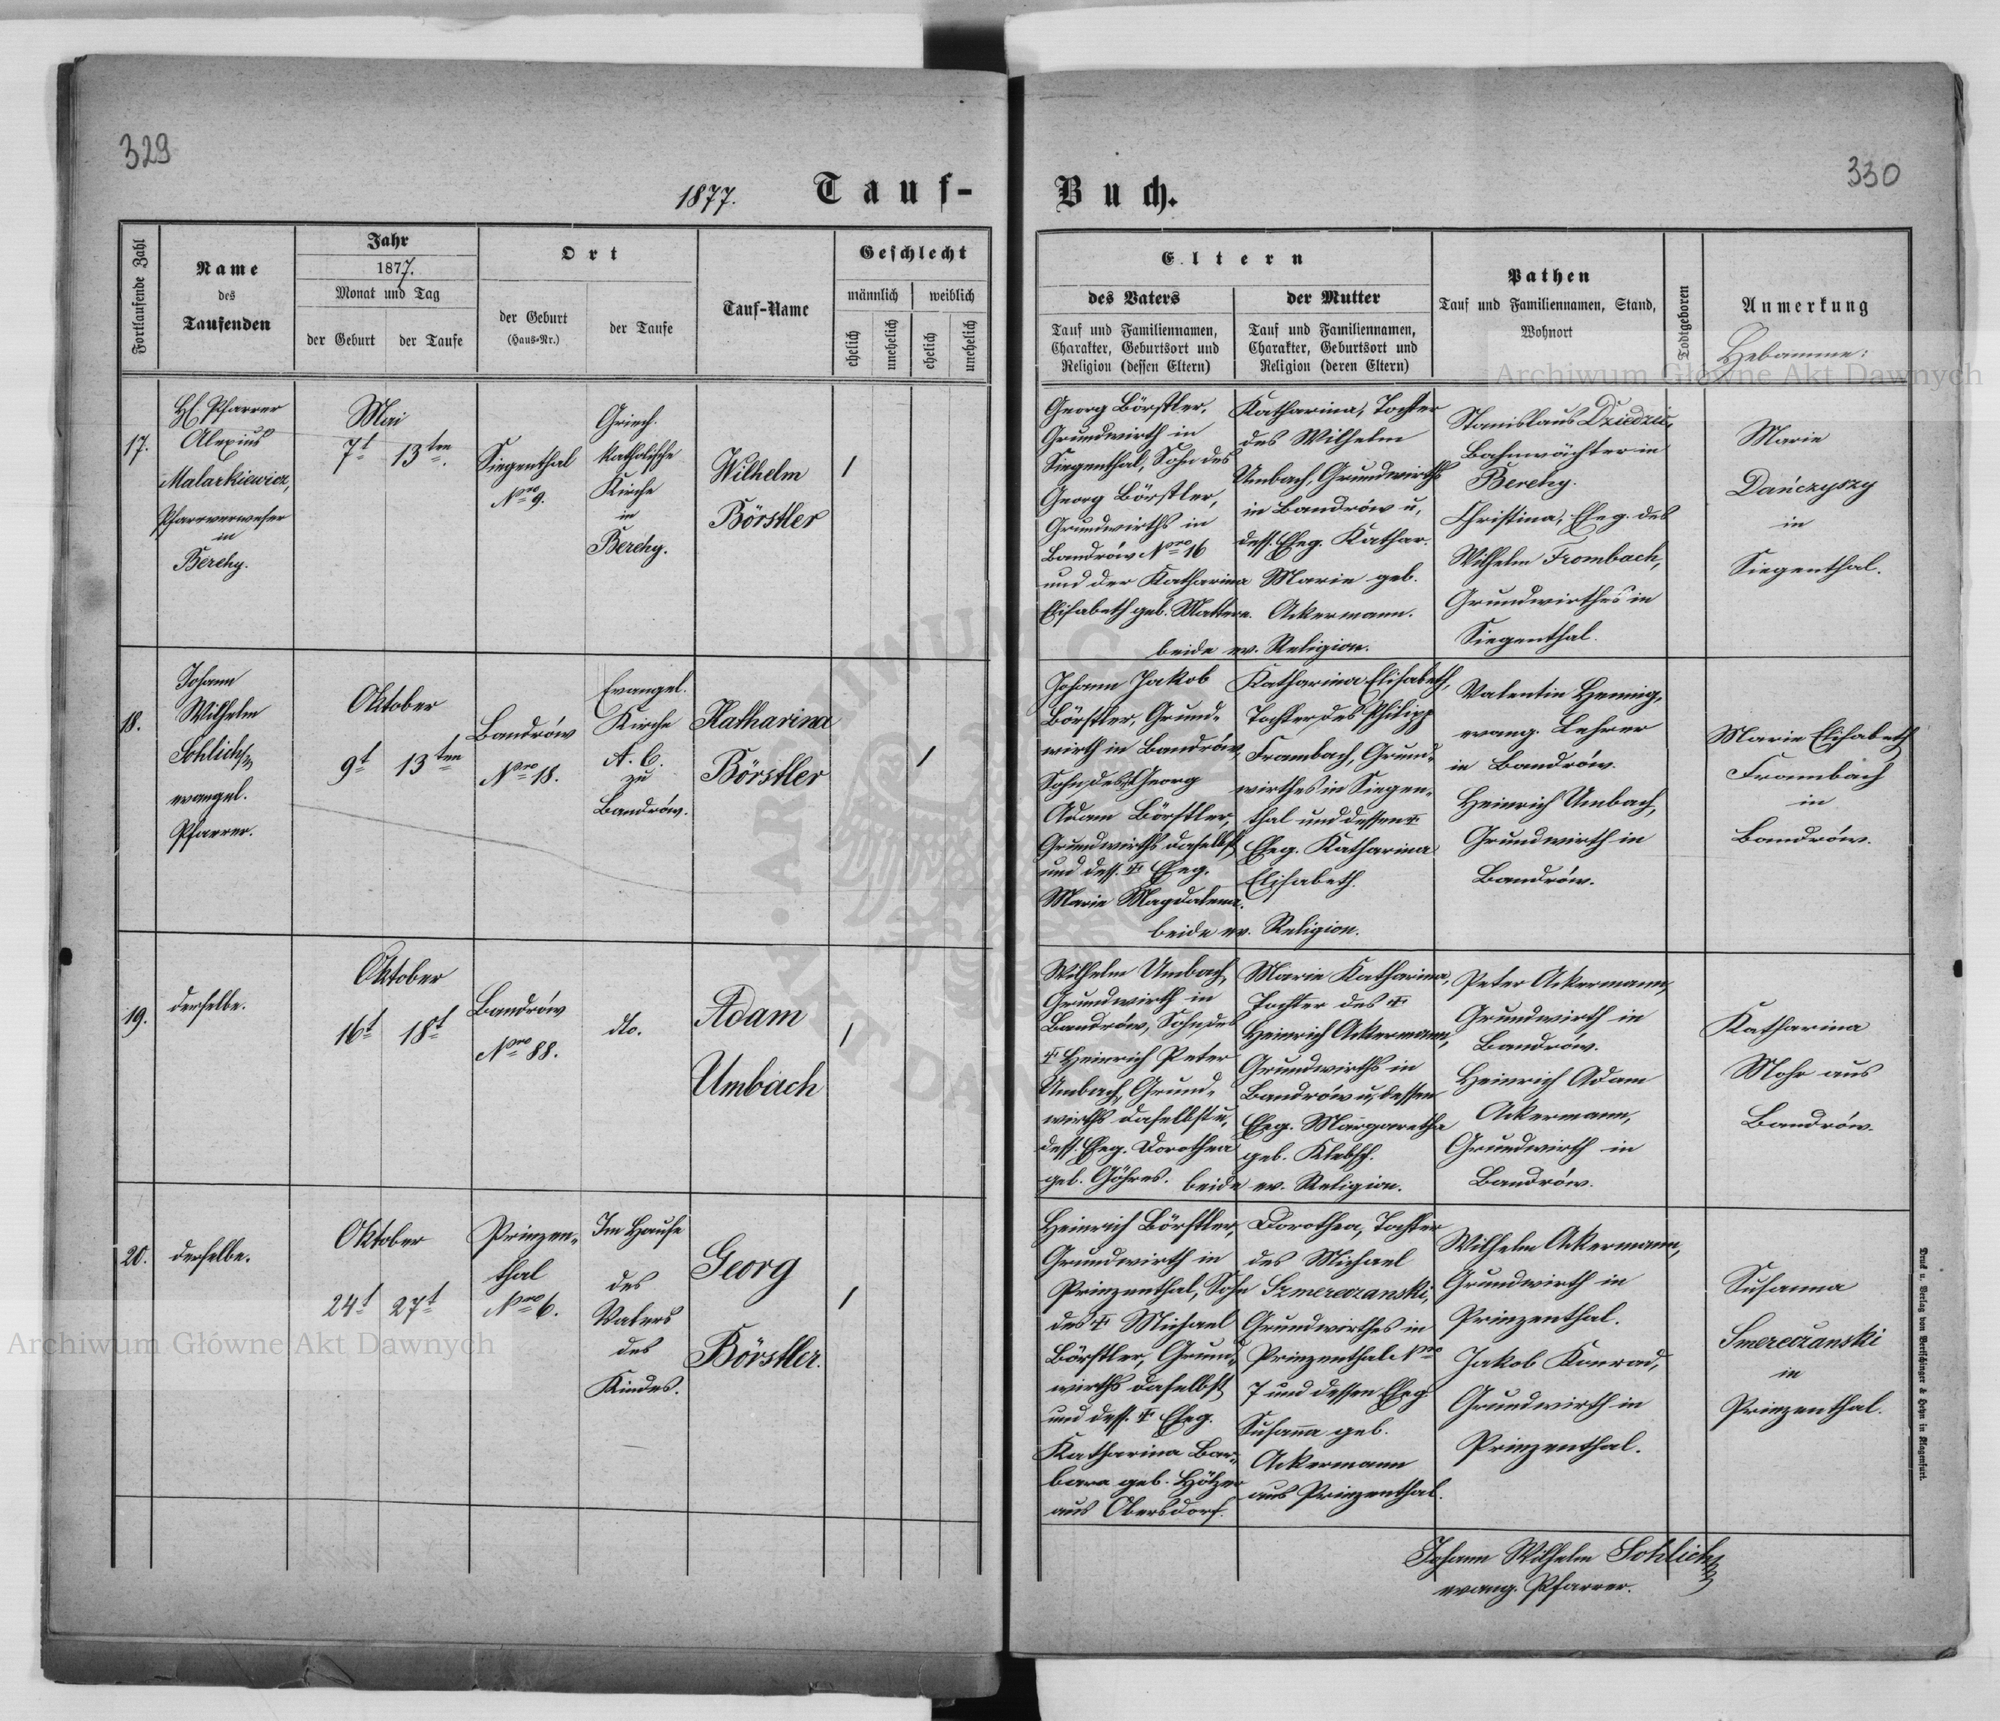 329
330
1877. Tauf-
Buch.
Fortlaufende Zahl
Name
des
Taufenden
Jahr
1877.
Monat und Tag
der Geburt
der Taufe
Ort
der Geburt
(Haus-Nr.)
der Taufe
Tauf-Name
Geschlecht
männlich
weiblich
ehelich
unehelich
ehelich
unehelich
Eltern
des Vaters
Tauf und Familiennamen,
Charakter, Geburtsort und
Religion (dessen Eltern)
der Mutter
Tauf und Familiennamen,
Charakter, Geburtsort und
Religion (deren Eltern)
Pathen
Tauf und Familiennamen, Stand,
Wohnort
Todtgeboren
Anmerkung
Hebamme:
17.
H. Pfarrer
Alexius
Malarkiewicz,
Pfarrverweser
in
Berehy.
Mai
7t
13ten.
Siegenthal
Nro 9.
Griech.
katholische
Kirche
in
Berehy.
Wilhelm
Börstler
/
Georg Börstler,
Grundwirth in
Siegenthal, Sohn des
Georg Börstler,
Grundwirths in
Bandrów Nro 16
und der Katharina
Elisabeth geb. Mattern.
Katharina, Tochter
des Wilhelm
Umbach, Grundwirths
in Bandrów u,
dess. Eheg. Kathar.
Marie geb.
Ackermann.
beide ev. Religion.
Stanislaus Dziedzic,
Bahnwächter in
Berehy.
Christina, Eheg. des
Wilhelm Frombach,
Grundwirthes in
Siegenthal.
Marie
Dańczyszy
in
Siegenthal.
18.
Johann
Wilhelm
Sohlich
evangel.
Pfarrer.
Oktober
9t
13ten
Bandrów
Nro 18.
Evangel.
Kirche
A. C.
zu
Bandrów.
Katharina
Börstler
/
Johann Jakob
Börstler, Grund-
wirth in Bandrów,
Sohn des Georg
Adam Börstler,
Grundwirths daselbst
und dess. † Eheg.
Marie Magdalena.
Katharina Elisabeth,
Tochter des Philipp
Frambach, Grund-
wirthes in Siegen-
thal und dessen †
Eheg. Katharina
Elisabeth.
beide ev. Religion.
Valentin Hennig,
evang. Lehrer
in Bandrów.
Heinrich Umbach,
Grundwirth in
Bandrów.
Marie Elisabeth
Frambach
in
Bandrów.
19.
derselbe.
Oktober
16t
18t
Bandrów
Nro 88.
dto.
Adam
Umbach
/
Wilhelm Umbach,
Grundwirth in
Bandrów, Sohn des
† Heinrich Peter
Umbach, Grund-
wirths daselbst u,
dess. Eheg. Dorothea
geb. Göhres.
Marie Katharina,
Tochter des †
Heinrich Ackermann,
Grundwirths in
Bandrów u, dessen
Eheg. Margaretha
geb.
beide ev. Religion.
Peter Ackermann,
Grundwirth in
Bandrów.
Heinrich Adam
Ackermann,
Grundwirth in
Bandrów.
Katharina
Mohr aus
Bandrów.
20.
derselbe.
Oktober
24t
27t
Prinzen-
thal
Nro 6.
Im Hause
des
Vaters
des
Kindes.
Georg
Börstler.
/
Heinrich Börstler,
Grundwirth in
Prinzenthal, Sohn
des † Michael
Börstler, Grund-
wirths daselbst
und dess. † Eheg.
Katharina Bar-
bara geb.
aus Obersdorf.
Dorothea, Tochter
des Michael
Szmereczanski,
Grundwirthes in
Prinzenthal Nro
7 und dessen Eheg.
Susanna geb.
Ackermann
aus Prinzenthal.
Wilhelm Ackermann,
Grundwirth in
Prinzenthal.
Jakob Konrad,
Grundwirth in
Prinzenthal.
Susanna
Smereczanski
in
Prinzenthal.
Johann Wilhelm Sohlich
evang. Pfarrer.
Druck u. Verlag von Bertschinger & Heyn in Klagenfurt.
Archiwum Główne Akt Dawnych
Archiwum Główne Akt Dawnych